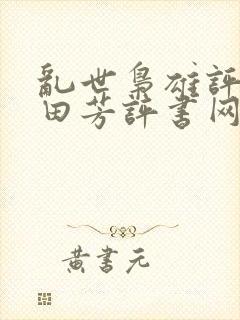 亂世梟雄評
田芳評書网
黄書元